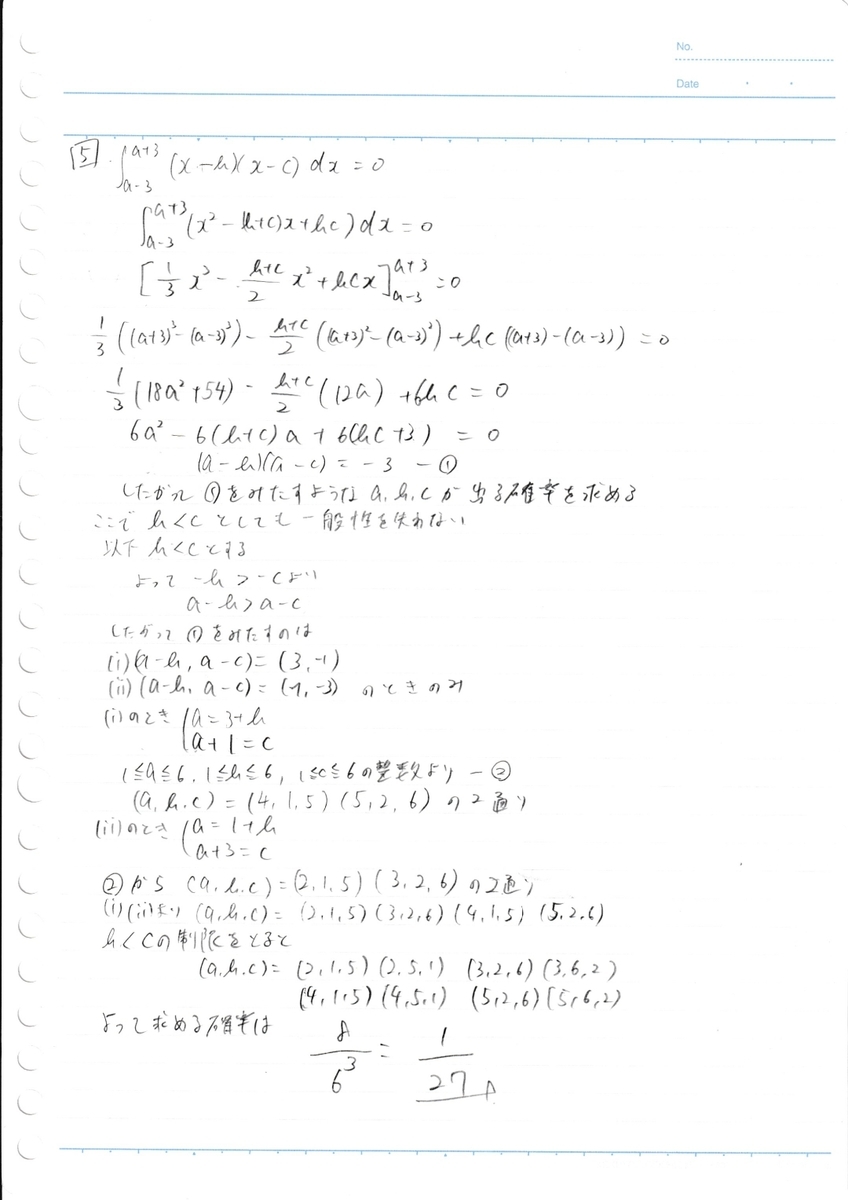 No.
Date
5 ∫_{a-3}^{a+3} (x-b)(x-c) dx = 0
∫_{a-3}^{a+3} (x²-(b+c)x+bc) dx = 0
[1/3 x³ - (b+c)/2 x² + bcx]_{a-3}^{a+3} = 0
1/3 ((a+3)³-(a-3)³) - (b+c)/2 ((a+3)²-(a-3)²) + bc((a+3)-(a-3)) = 0
1/3 (18a²+54) - (b+c)/2 (12a) + 6bc = 0
6a² - 6(b+c)a + 6(bc+3) = 0
(a-b)(a-c) = -3 -①
したがって ①をみたすような a, b, c が 出る確率を求める
ここで b<c としても 一般性を失わない
以下 b<c とする
よって -b > -c より
a-b > a-c
したがって ①をみたすのは
(i) (a-b, a-c) = (3, -1)
(ii) (a-b, a-c) = (1, -3) のときのみ
(i) のとき { a = 3+b
a+1 = c
1≦a≦6, 1≦b≦6, 1≦c≦6 の整数より -②
(a, b, c) = (4, 1, 5) (5, 2, 6) の2通り
(ii) のとき { a = 1+b
a+3 = c
②から (a, b, c) = (2, 1, 5) (3, 2, 6) の2通り
(i) (ii) より (a, b, c) = (2, 1, 5) (3, 2, 6) (4, 1, 5) (5, 2, 6)
b<c の制限をとると
(a, b, c) = (2, 1, 5) (2, 5, 1) (3, 2, 6) (3, 6, 2)
(4, 1, 5) (4, 5, 1) (5, 2, 6) (5, 6, 2)
よって求める確率は 8/6³ = 1/27